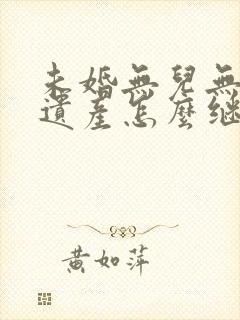 未婚無兒無
遺產怎麼繼
黃如萍